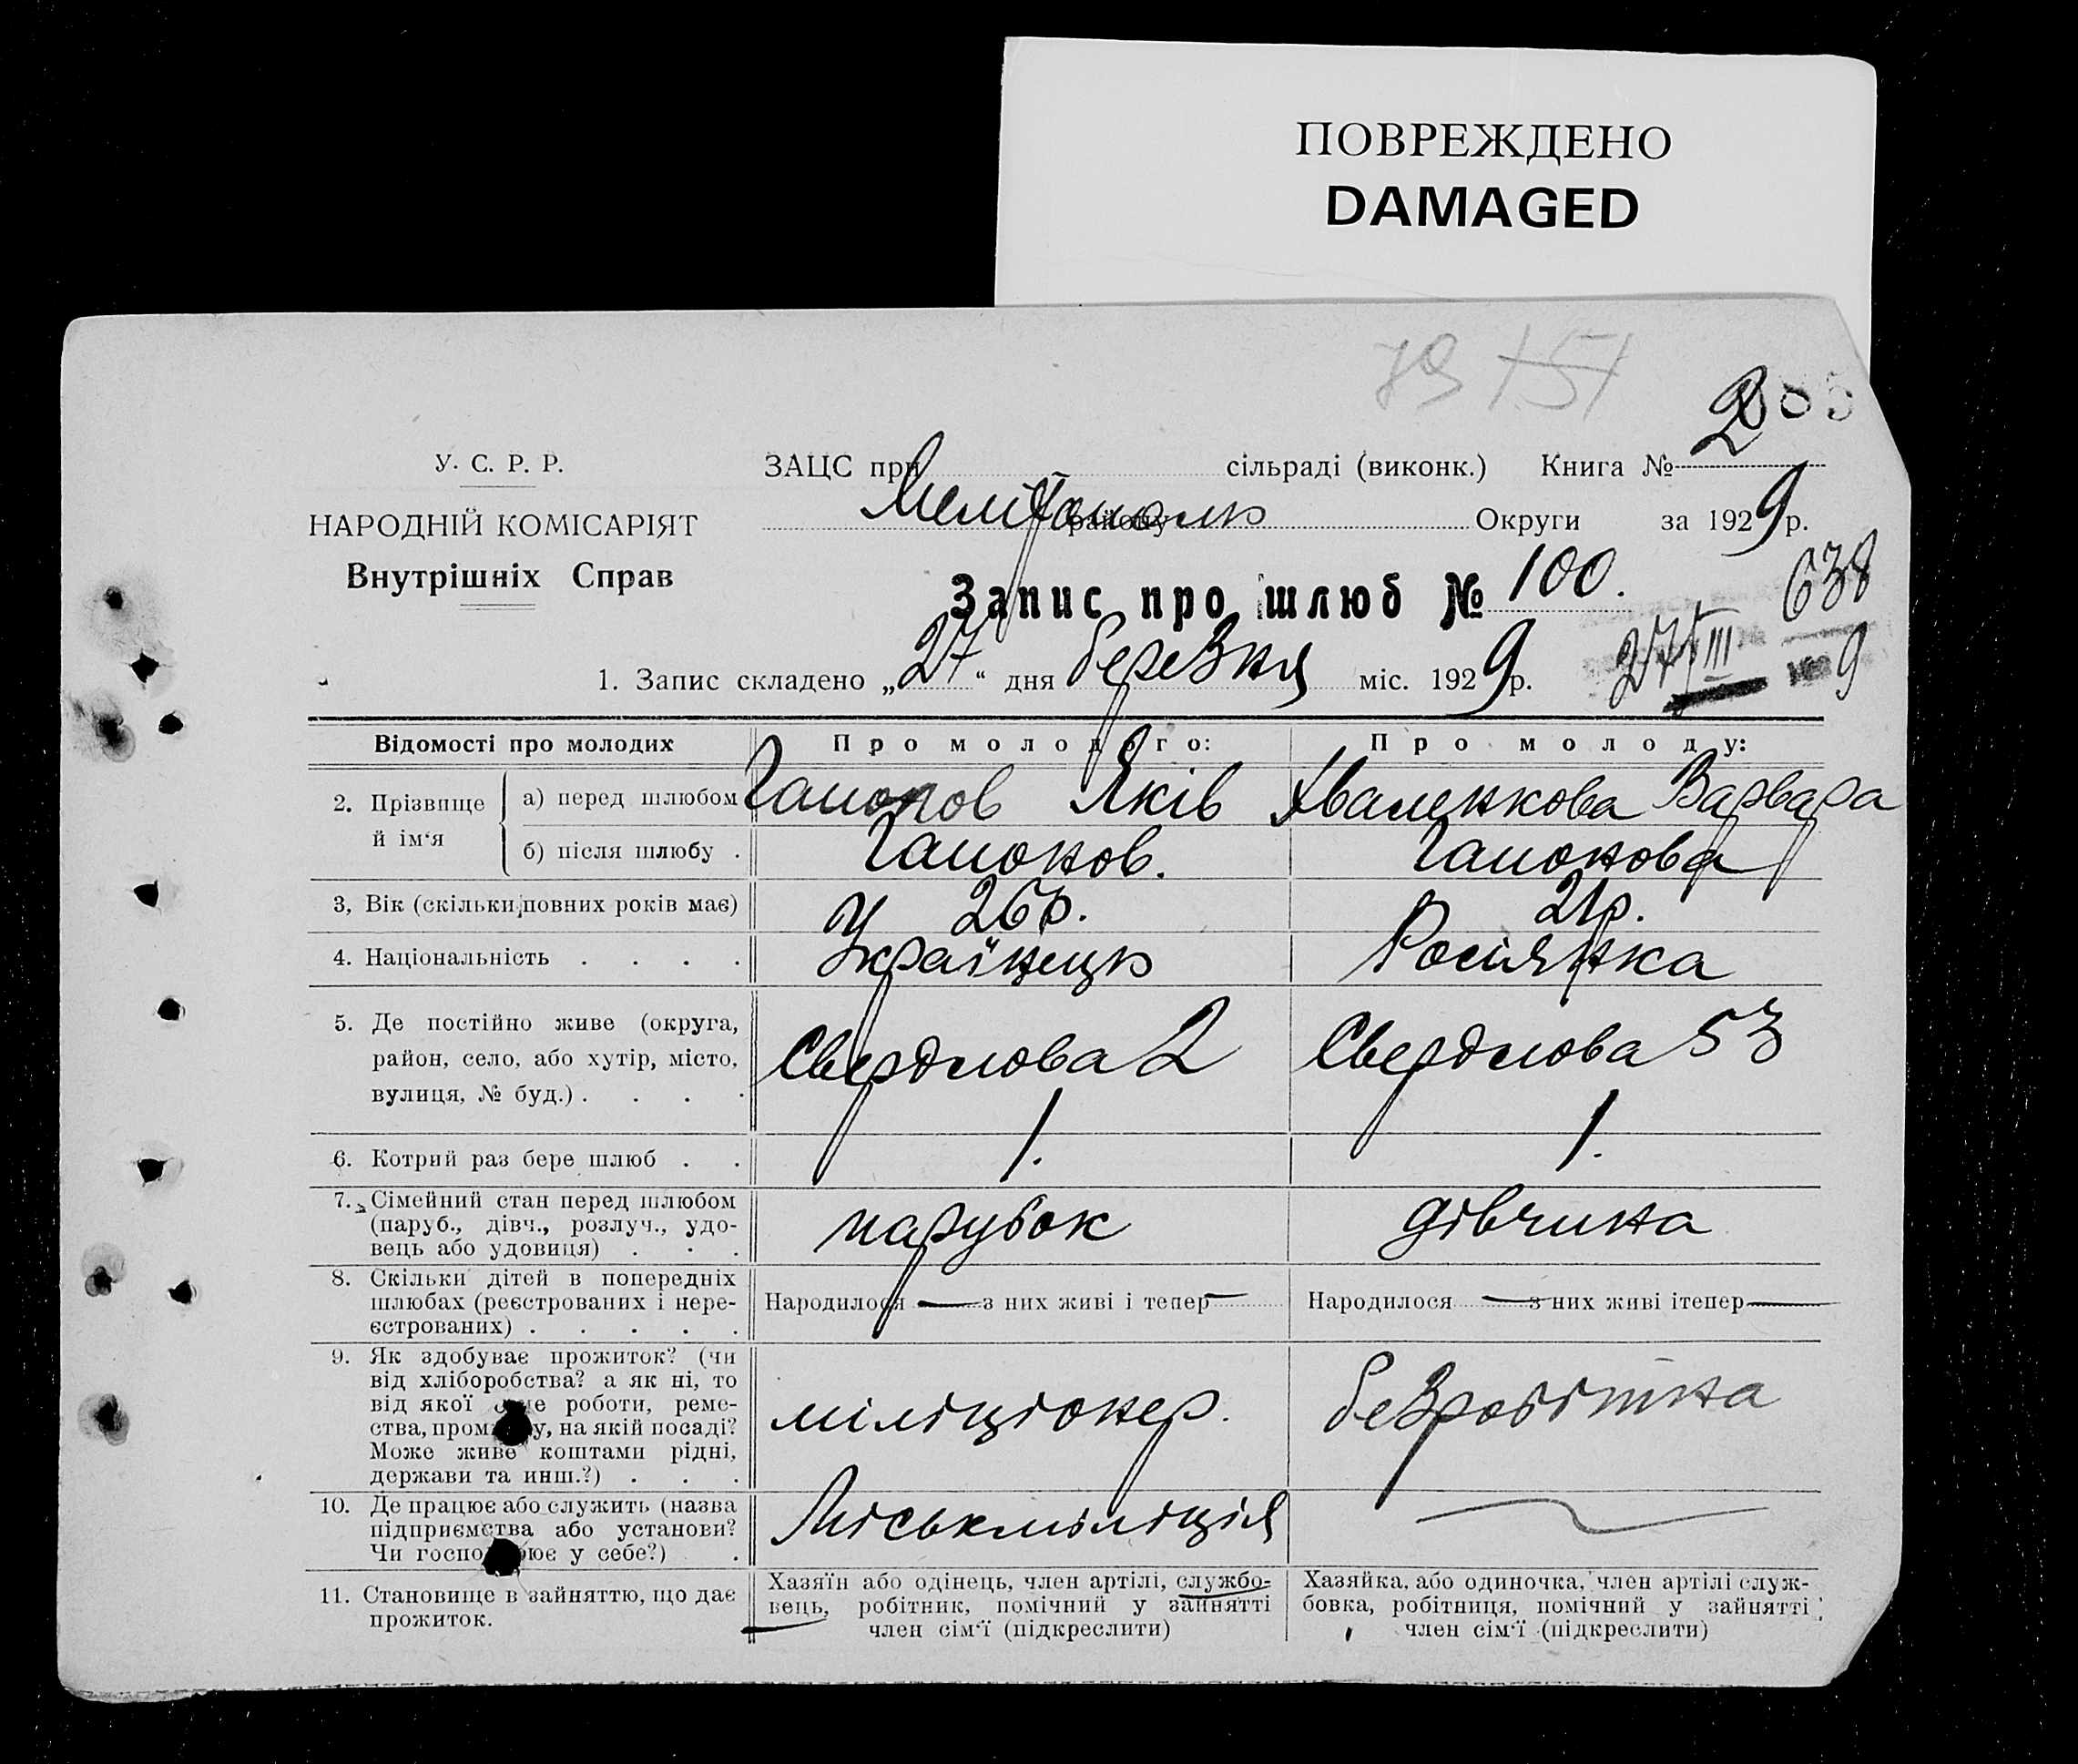 ПОВРЕЖДЕНО
DAMAGED
У. С. Р. Р.
НАРОДНІЙ КОМІСАРІЯТ
Внутрішніх Справ
ЗАЦС при сільраді (виконк.) Книга № 2
Мелітополь району Округи за 1929 р.
Запис про шлюб № 100.
638
27/III 9
1. Запис складено „27“ дня березня міс. 1929 р.
Відомості про молодих
Про молодого:
Про молоду:
2. Прізвище й ім‘я
а) перед шлюбом
Гапонов Яків
Хваленкова Варвара
б) після шлюбу .
Гапонов.
Гапонова
3, Вік (скільки повних років має)
26 р.
21 р.
4. Національність . . . .
Українець
Росіянка
5. Де постійно живе (округа,
район, село, або хутір, місто,
вулиця, № буд.) . . . .
Свердлова 2
Свердлова 53
6. Котрий раз бере шлюб . .
1.
1.
7. Сімейний стан перед шлюбом
(паруб., дівч., розлуч., удо-
вець або удовиця) . . .
парубок
дівчина
8. Скільки дітей в попередніх
шлюбах (реєстрованих і нере-
єстрованих) . . . . .
Народилося — з них живі і тепер —
Народилося — з них живі ітепер —
9. Як здобуває прожиток? (чи
від хліборобства? а як ні, то
від якої роботи, реме-
ства, на якій посаді?
Може живе коштами рідні,
держави та инш.?) . . .
міліціонер.
безробітна
10. Де працює або служить (назва
підприємства або установи?
Чи у себе?) .
Міськміліція
11. Становище в зайняттю, що дає
прожиток.
Хазяїн або одінець, член артілі, службо-
вець, робітник, помічний у зайнятті
член сім‘ї (підкреслити)
Хазяйка, або одиночка, член артілі служ-
бовка, робітниця, помічний у зайнятті
член сім‘ї (підкреслити)